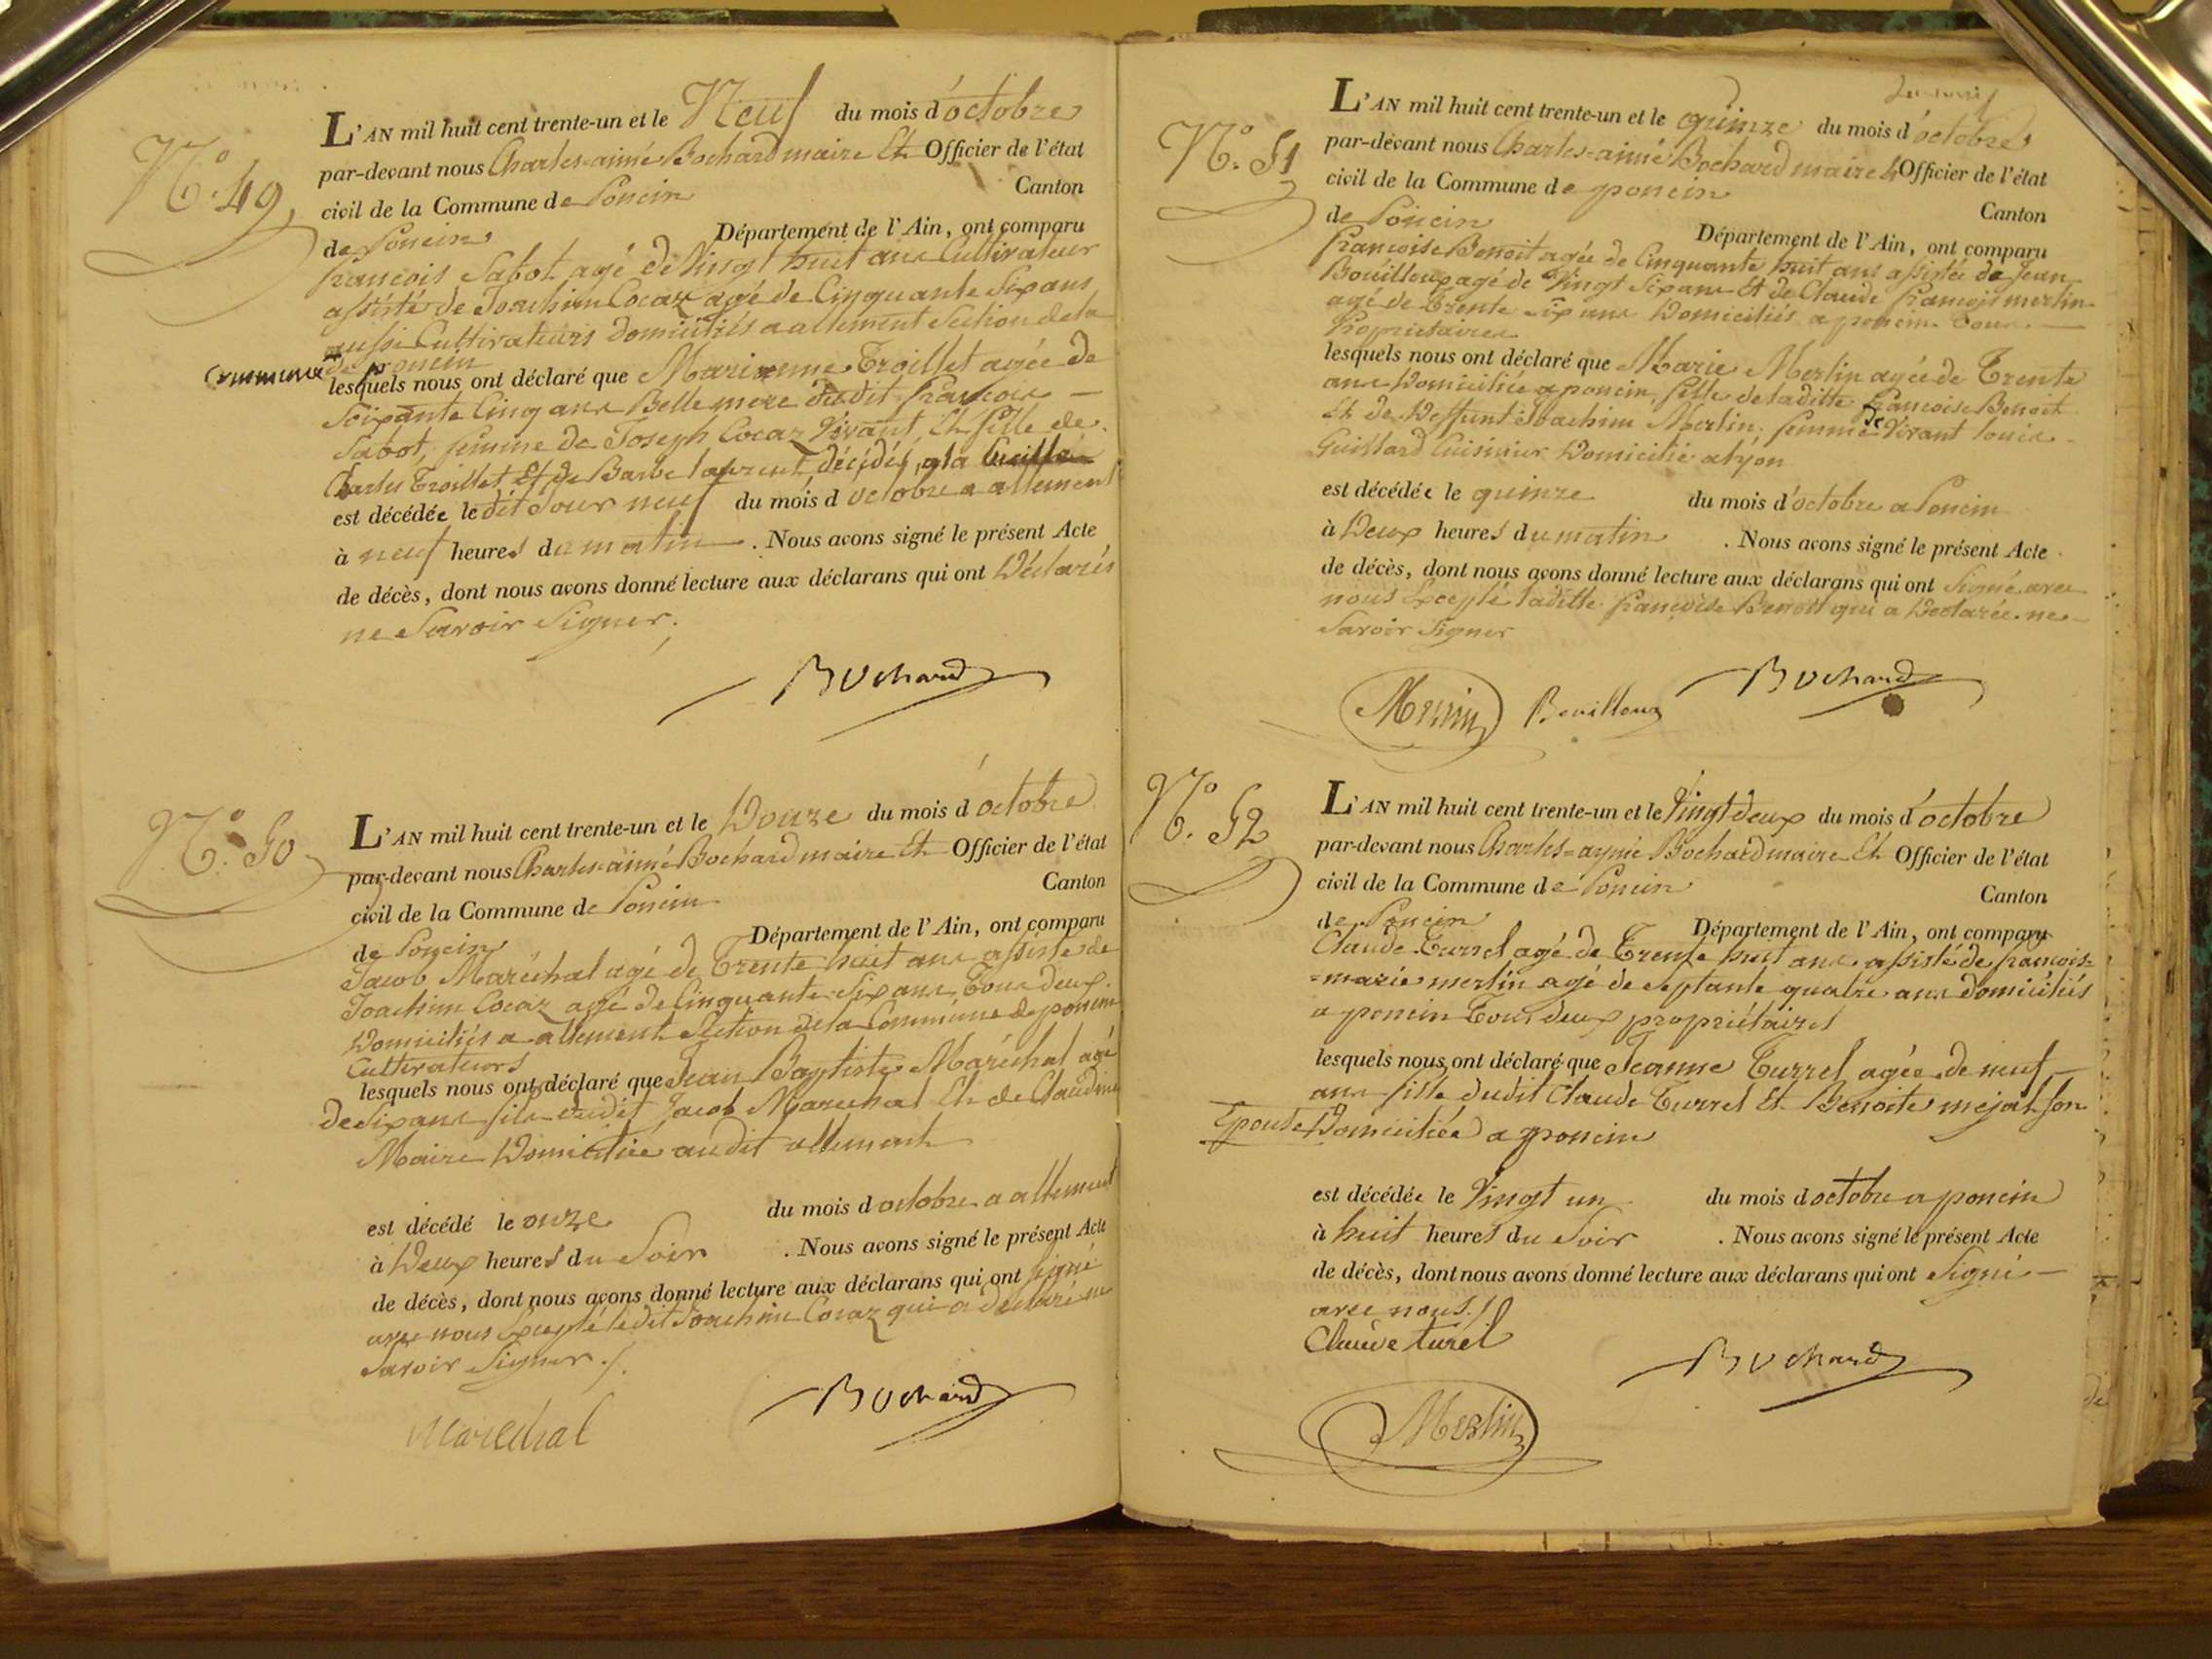 N.° 49
L'AN mil huit cent trente-un et le Neuf du mois d'octobre
par-devant nous Charles-aimé Bochard maire Et Officier de l'état
civil de la Commune de Poncin Canton
de Poncin Département de l'Ain, ont comparu
francois Sabot agé de Vingt huit ans Cultivateur
assisté de Joachim Cocaz agé de Cinquante Six ans
aussi Cultivateurs Domiciliés a allement Section de la
Commune de poncin
lesquels nous ont déclaré que Marianne Troillet agée de
Soixante Cinq ans Belle mere dudit francois
Sabot, femme de Joseph Cocaz Vivant, Et fille de
Charles Troillet Et de Barbe laurent, décédés, a la
est décédée le dit Jour neuf du mois d octobre a allement
à neuf heures du matin . Nous avons signé le présent Acte
de décès, dont nous avons donné lecture aux déclarans qui ont Déclarés
ne Savoir Signer.
Bochard
N.° 50
L'AN mil huit cent trente-un et le Douze du mois d'octobre
par-devant nous Charles-aimé Bochard maire Et Officier de l'état
civil de la Commune de Poncin Canton
de Poncin Département de l'Ain, ont comparu
Jacob Maréchal agé de Trente huit ans assisté de
Joachim Cocaz agé de Cinquante Six ans, Tous deux
Domiciliés a allement Section de la Commune de poncin
Cultivateurs
lesquels nous ont déclaré que Jean Baptiste Maréchal agé
de Six ans fils dudit Jacob Maréchal Et de Claudine
Maire Domiciliée audit allement
est décédé le onze du mois d octobre a allement
à Deux heures du Soir . Nous avons signé le présent Acte
de décès, dont nous avons donné lecture aux déclarans qui ont signé
avec nous Excepté ledit Joachim Cocaz qui a déclaré ne
Savoir Signer.
Maréchal Bochard
N.° 51
L'AN mil huit cent trente-un et le quinze du mois d'octobre
par-devant nous Charles-aimé Bochard maire Et Officier de l'état
civil de la Commune de poncin Canton
de Poncin Département de l'Ain, ont comparu
francoise Benoit agée de Cinquante huit ans assistée de Jean
Bouilloux agé de Vingt Six ans Et de Claude francois merlin
agé de Trente Six ans Domiciliés a poncin Tous
Propriétaires
lesquels nous ont déclaré que Marie Merlin agée de Trente
ans Domiciliée a poncin, fille de laditte francoise Benoit
Et de Deffunt Joachim Merlin, femme de Vivant louis
Guillard Cuisinier Domicilié a lyon
est décédée le quinze du mois d'octobre a Poncin
à Deux heures du matin . Nous avons signé le présent Acte
de décès, dont nous avons donné lecture aux déclarans qui ont Signé avec
nous Excepté laditte francoise Benoit qui a Declarée ne
Savoir Signer
Merlin Bouilloux Bochard
N.° 52
L'AN mil huit cent trente-un et le Vingt deux du mois d'octobre
par-devant nous Charles-aymé Bochard maire Et Officier de l'état
civil de la Commune de Poncin Canton
de Poncin Département de l'Ain, ont comparu
Claude Turrel agé de Trente huit ans assisté de francois=
=marie merlin agé de septante quatre ans domiciliés
a poncin Tous deux propriétaires
lesquels nous ont déclaré que Jeanne Turrel agée de neuf
ans fille dudit Claude Turrel Et Benoite mejat son
Epouse Domiciliée a poncin
est décédée le Vingt un du mois d octobre a poncin
à huit heures du Soir . Nous avons signé le présent Acte
de décès, dont nous avons donné lecture aux déclarans qui ont Signé
avec nous.
Claude turel
Bochard
Merlin